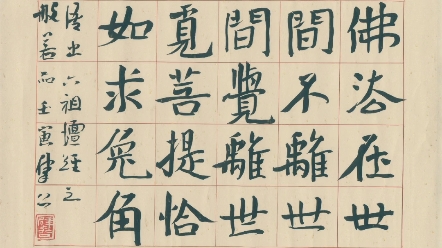 佛法在世
間不離世
間覺離世
覓菩提恰
如求兔角
語出六祖壇經之
般若壬寅